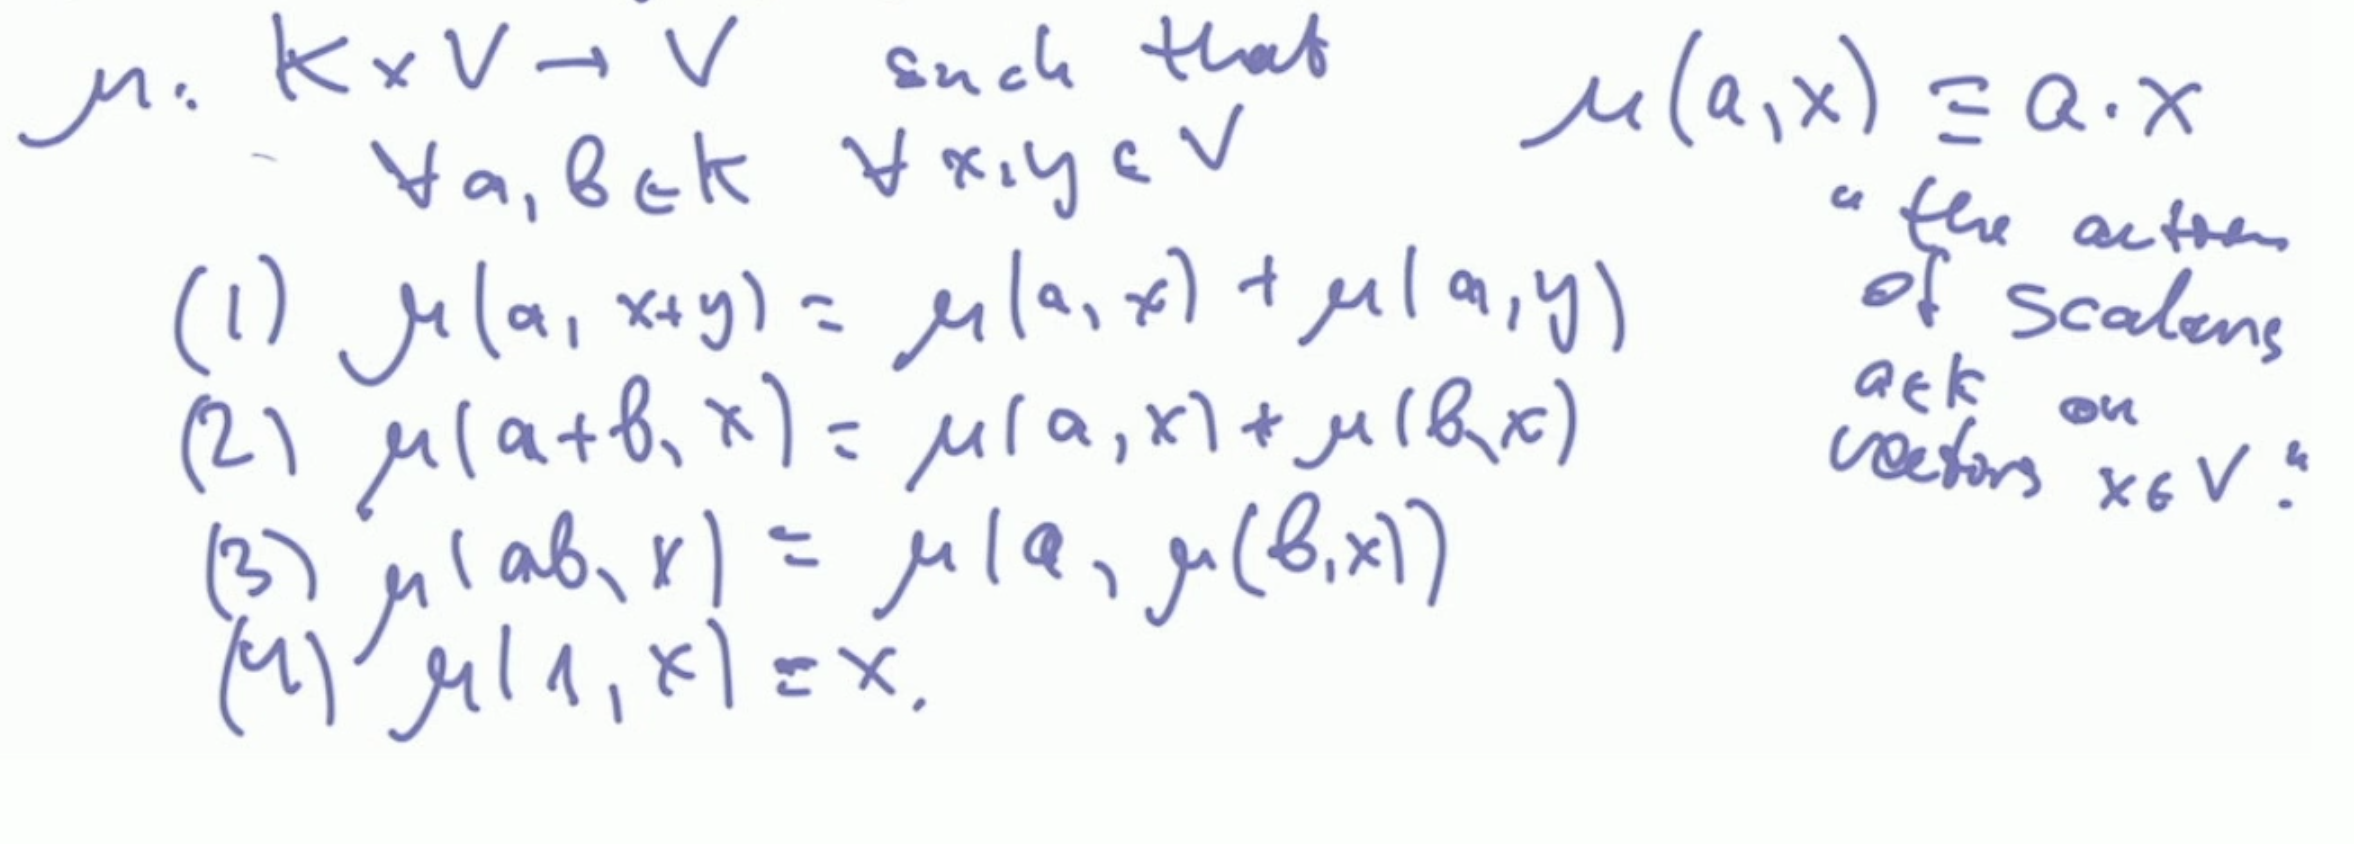 μ: K × V → V such that
∀ a, b ∈ K ∀ x, y ∈ V
(1) μ(a, x+y) = μ(a, x) + μ(a, y)
(2) μ(a+b, x) = μ(a, x) + μ(b, x)
(3) μ(ab, x) = μ(a, μ(b, x))
(4) μ(1, x) = x.
μ(a, x) ≡ a · x
"the action
of scalars
a ∈ K on
vectors x ∈ V."